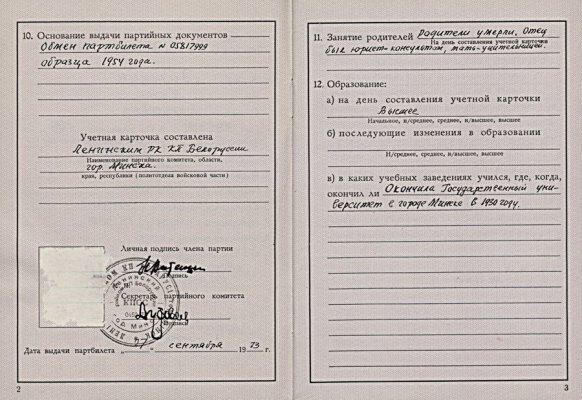 10. Основание выдачи партийных документов
Обмен партбилета № 05817999
образца 1954 года.
Учетная карточка составлена
Ленинским РК КП Белоруссии
Наименование партийного комитета, области,
гор. Минска
края, республики (политотдела войсковой части)
Личная подпись члена партии
Подпись
Секретарь партийного комитета
КПСС
Подпись
Дата выдачи партбилета „ “ сентября 1973 г.
2
11. Занятие родителей Родители умерли. Отец
На день составления учетной карточки
был юрист-консультом, мать-учительницей.
12. Образование:
а) на день составления учетной карточки
Высшее
Начальное, н/среднее, среднее, н/высшее, высшее
б) последующие изменения в образовании
Н/среднее, среднее, н/высшее, высшее
в) в каких учебных заведениях учился, где, когда,
окончил ли Окончила Государственный уни-
верситет в городе Минске в 1930 году.
3